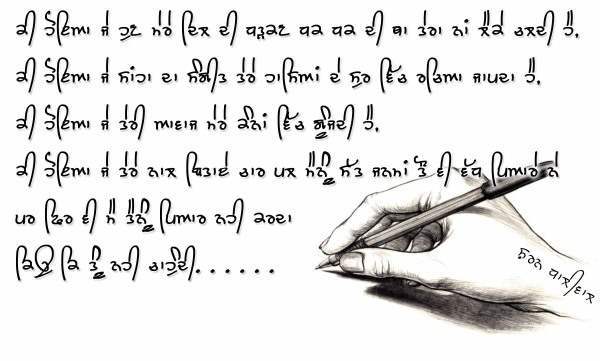 ਕੀ ਹੋਇਆ ਜੇ ਹੁਣ ਮੇਰੇ ਦਿਲ ਦੀ ਧੜਕਣ ਧਕ ਧਕ ਦੀ ਥਾ ਤੇਰਾ ਨਾਂ ਲੈਕੇ ਚਲਦੀ ਹੈ,
ਕੀ ਹੋਇਆ ਜੇ ਸਾਂਹਾ ਦਾ ਸੰਗੀਤ ਤੇਰੇ ਹਾਸਿਆਂ ਦੇ ਸੁਰ ਵਿੱਚ ਰਚਿਆ ਜਾਪਦਾ ਹੈ,
ਕੀ ਹੋਇਆ ਜੇ ਤੇਰੀ ਆਵਾਜ ਮੇਰੇ ਕੰਨਾਂ ਵਿੱਚ ਗੂੰਜਦੀ ਹੈ,
ਕੀ ਹੋਇਆ ਜੇ ਤੇਰੇ ਨਾਲ ਬਿਤਾਏ ਚਾਰ ਪਲ ਮੈਨੂੰ ਸੱਤ ਜਨਮਾਂ ਤੋਂ ਵੀ ਵੱਧ ਪਿਆਰੇ ਨੇ
ਪਰ ਫਿਰ ਵੀ ਮੈਂ ਤੈਨੂੰ ਪਿਆਰ ਨਹੀ ਕਰਦਾ
ਕਿਉਂ ਕਿ ਤੂੰ ਨਹੀ ਚਾਹੁੰਦੀ......
ਧਾਲੀਵਾਲ